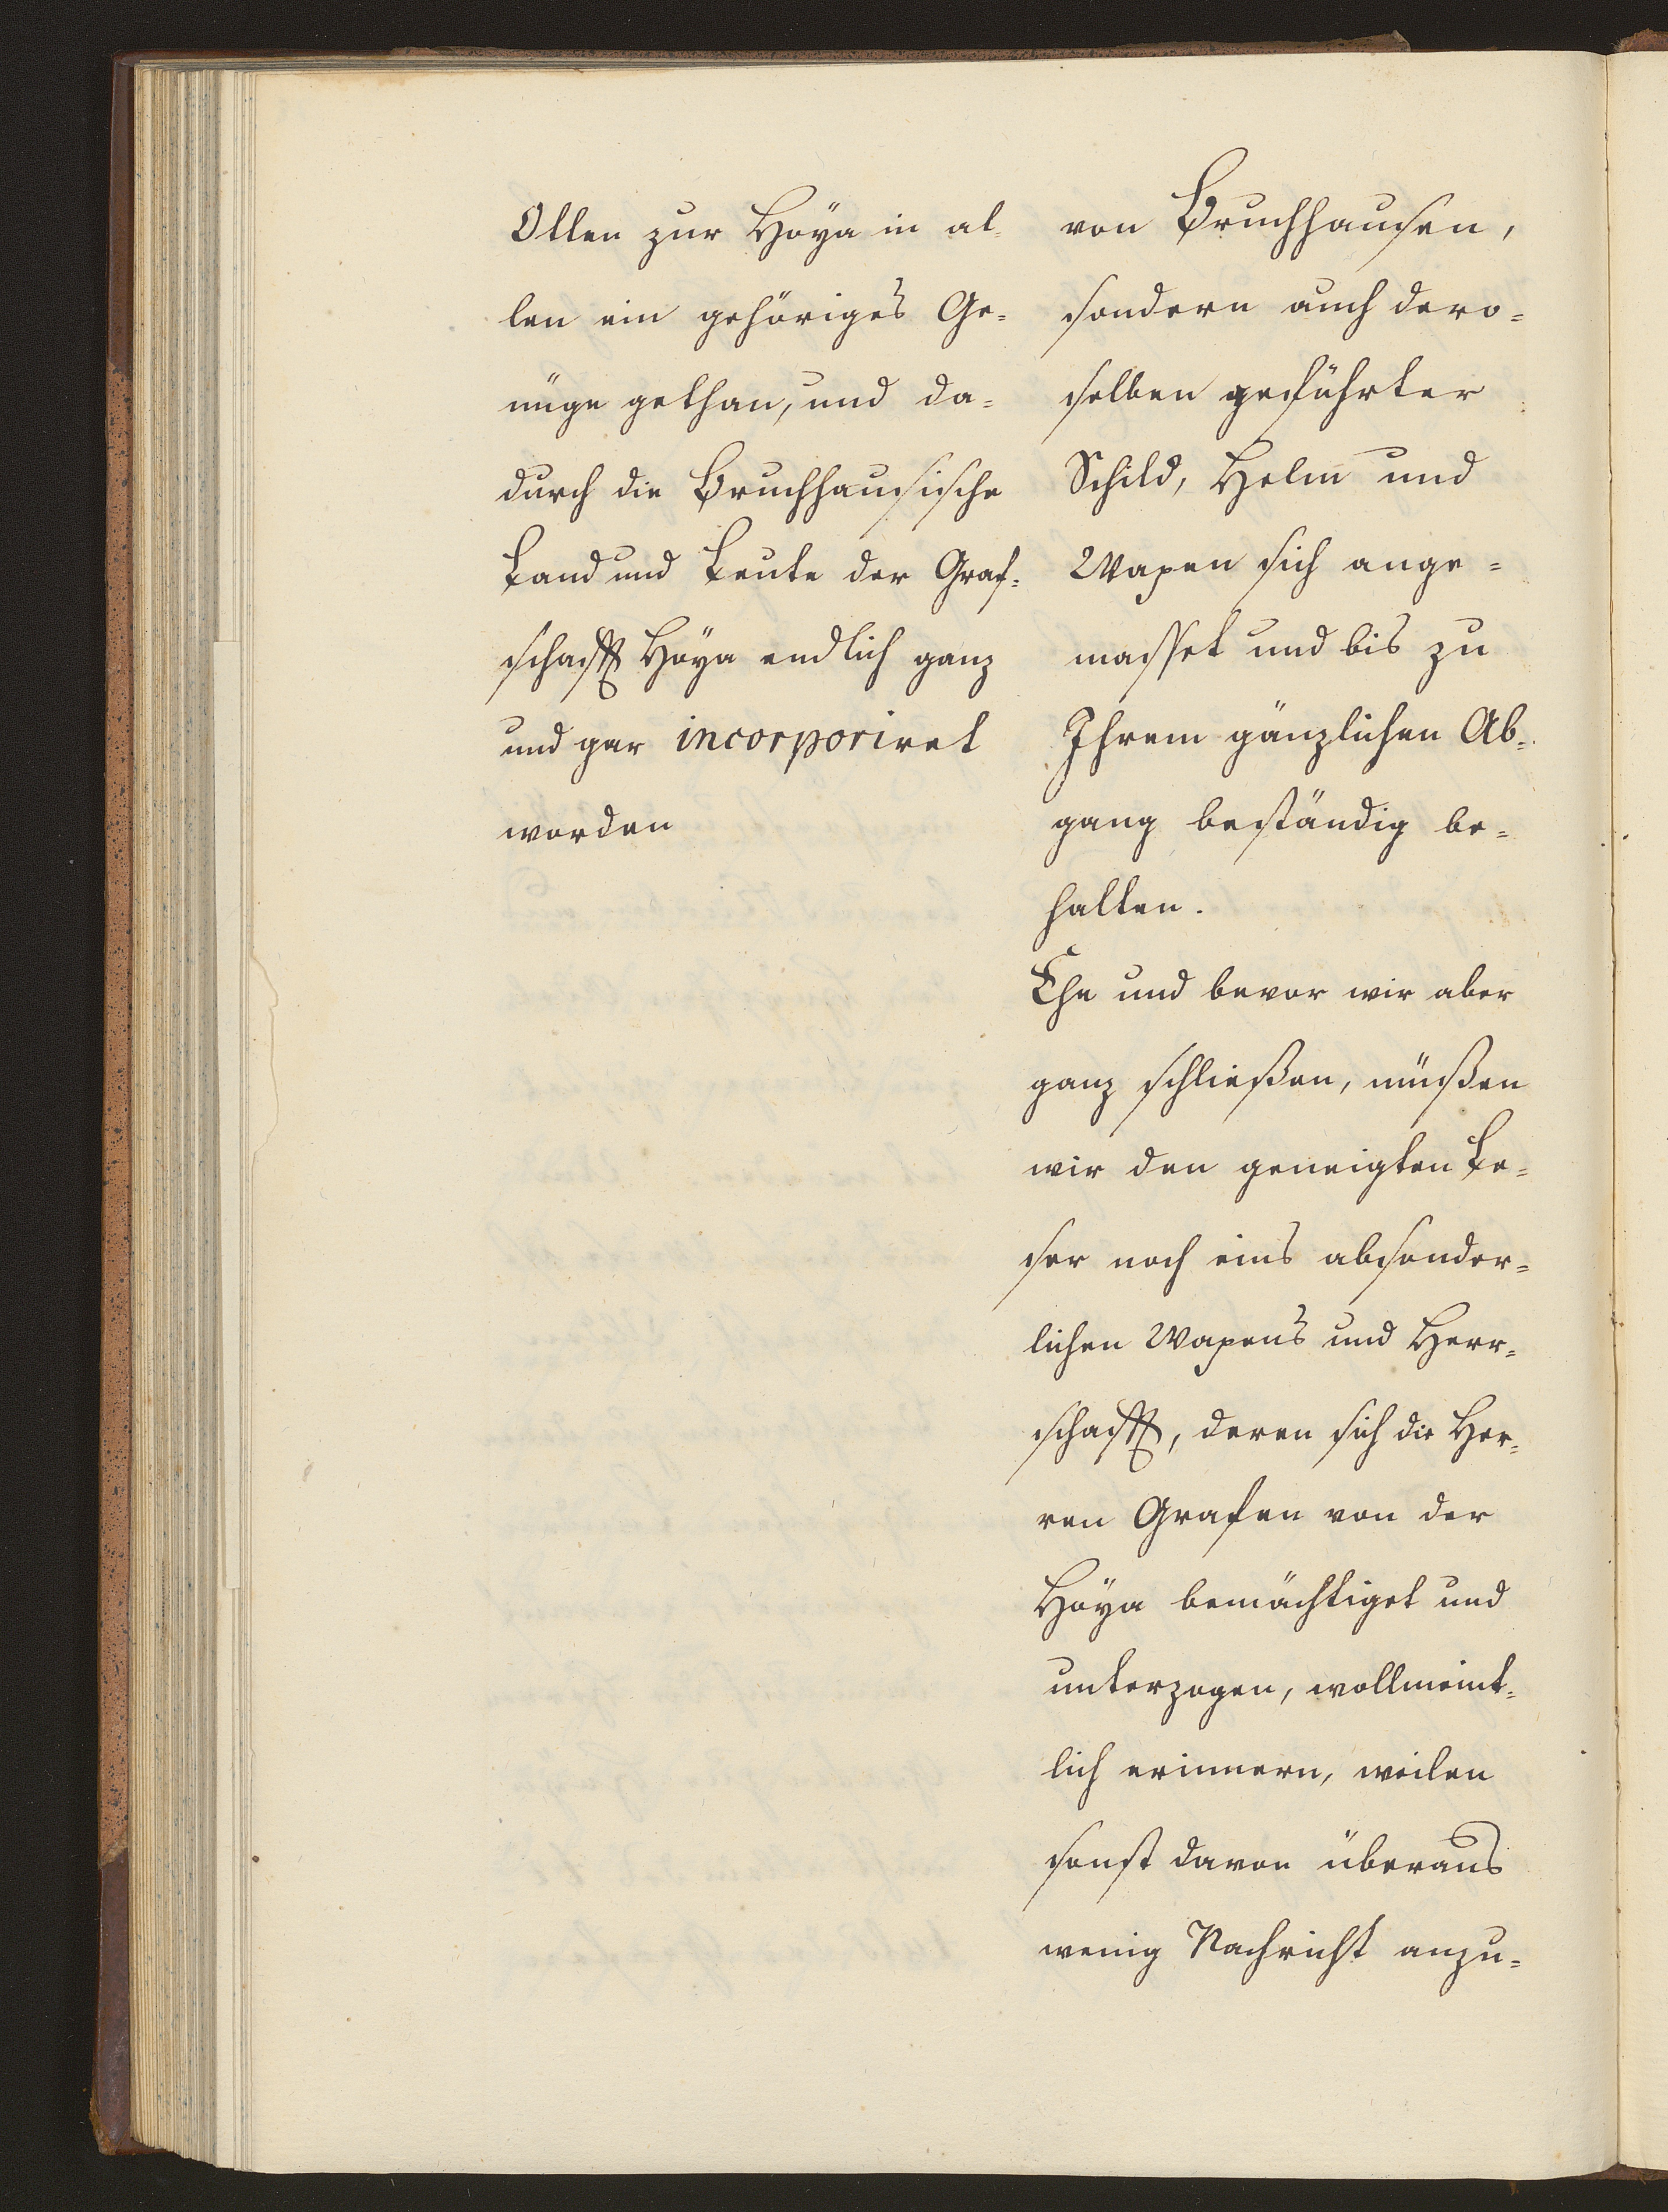 Otten zur Hoÿa in al-
len ein gehöriges Ge-
nüge gethan, und da-
durch die Bruchhausische
Land und Leute der Graf-
schafft Hoÿa endlich ganz
und gar incorporiret
worden
von Bruchhausen,
sondern auch dero-
selben geführter
Schild, Helm und
Wapen sich ange-
masset und bis zu
Ihrem gänzlichen Ab-
gang beständig be-
halten.
Ehe und bevor wir aber
ganz schließen, müßen
wir den geneigten Le-
ser noch eins absonder-
lichen Wapens und Herr-
schafft, deren sich die Her-
ren Grafen von der
Hoÿa bemächtiget und
unterzogen, wollmeint-
lich erinnern, weilen
sonst davon überaus
wenig Nachricht anzu-